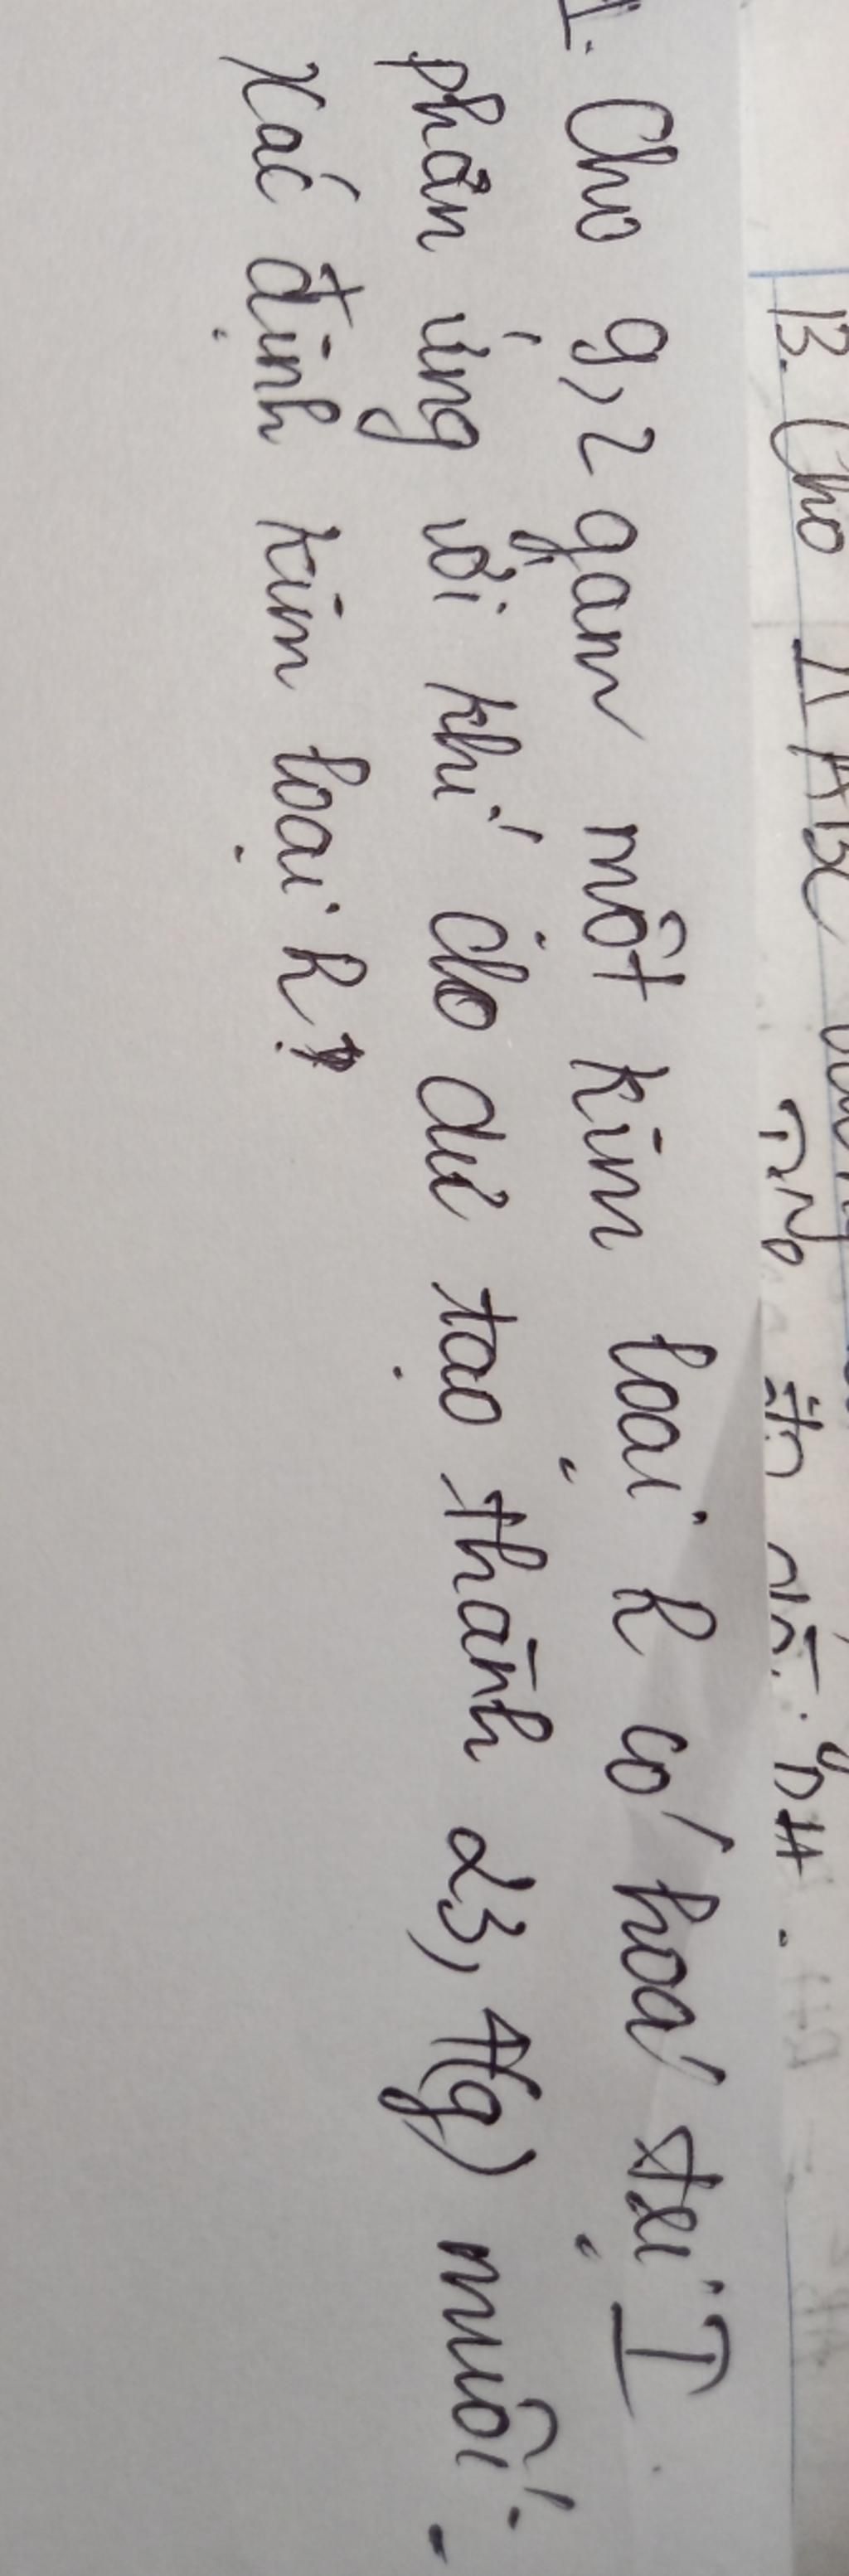 13. Cho
1. Cho 9,2 gam một kim loại R có hoá trị I.
phản ứng với khí clo dư tạo thành 23,4(g) muối.
Xác định kim loại R?